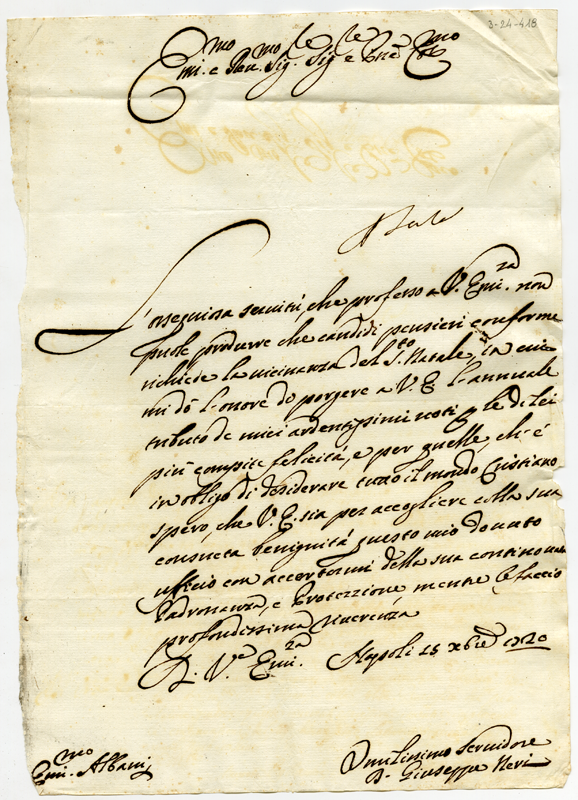 3-24-418
Emi.mo e Rev.mo Sig.re Sig.re e Pne Col.mo
L'ossequiosa servitù, che professo a V. Emi.za non
puole produrre che candidi pensieri conforme
richiede la vicinanza del S.to Natale, in cui
mi dò l'onore di porgere a V. E. l'annuale
tributo de miei ardentissimi voti p le di lei
più compite felicità, e per quelle, ch'è
in obligo di desiderare tutto il mondo Cristiano
spero, che V. E. sia per accogliere colla sua
consueta benignità questo mio dovuto
ufficio con accertarmi della sua continouata
Padronanza, e Protezzione mentre le faccio
profondissima riverenza
D. V.a Emi.za Napoli 15 xbre 1720
Emi.mo Albani
Umilissimo Servidore
D. Giuseppe Neri